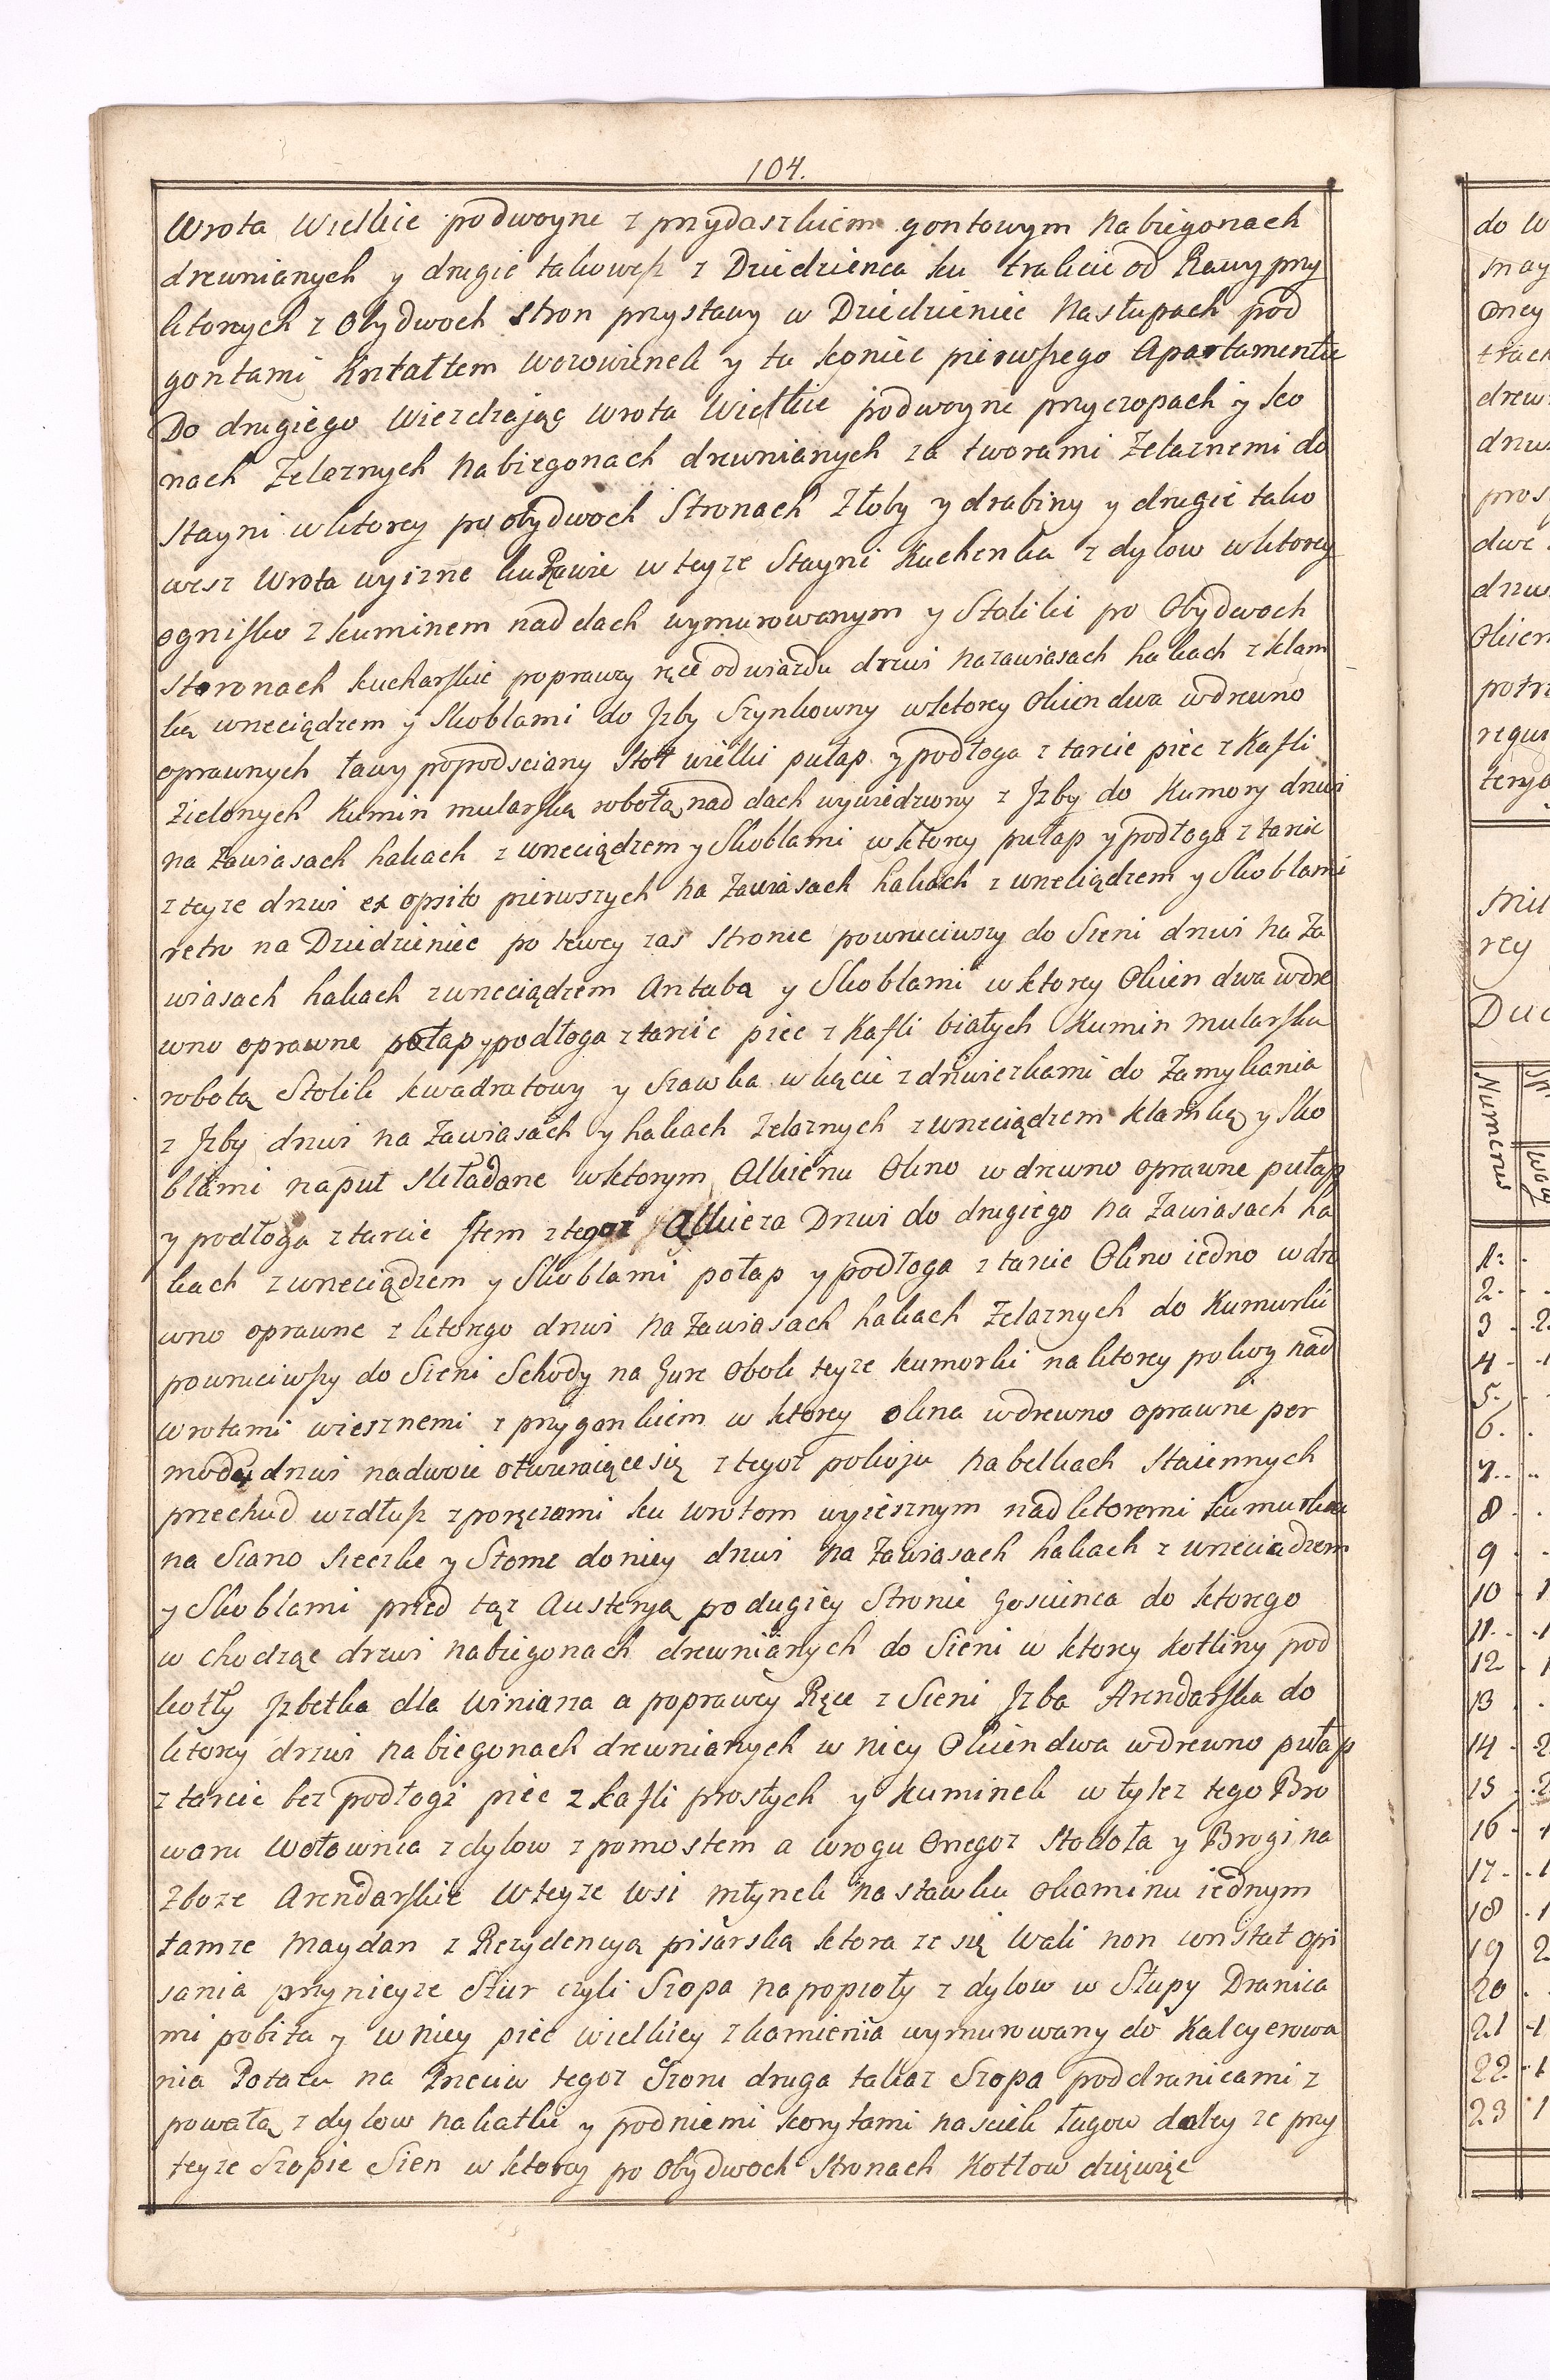 104.
Wrota Wielkie podwoyne z przydaszkiem gontowym na biegonach
drewnianych y drugie takowesz z Dziedzienca ku trakcie od Rawy przy
ktorych z obydwoch stron przystawy w Dziedzieniec na słupach pod
gontami Kształtem wozowienek y tu koniec pierwszego Apartamentu
Do drugiego wiezdzając wrota wielkie podwoyne przy czopach y ko
nach Zelaznych na biegonach drewnianych za tworami Zelaznemi do
stayni w ktorey po obydwoch Stronach Złoby y drabiny y drugie tako
wesz Wrota wyizne ku Rawie w teyze Stayni Kuchenka z dylow w ktorey
ognisko z kuminem nad dach wymurowanym y Stoliki po Obydwoch
storonach kucharskie po prawey ręce od wiazdu drzwi na zawiasach hakach z klam
ką wrzeciądzem y Skoblami do Jzby Szynkowny w ktorey Okien dwa w drewno
oprawnych ławy popod sciany Stoł wielki pułap y podłoga z tarcic piec z Kafli
Zielonych Kumin mularską robotą nad dach wywiedziony z Jzby do Kumory drzwi
na Zawiasach hakach z wrzeciądzem y Skoblami w ktorey pułap y podłoga z tarcic
z teyze drzwi ex opsito pierwszych na Zawiasach hakach z wrzeciądzem y Skoblami
retro na Dziedzieniec po lewey zas stronie powruciwszy do Sieni drzwi na Za
wiasach hakach z wrzeciądzem Antaba y Skoblami w ktorey Okien dwa w dre
wno oprawne połap y podłoga z tarcic piec z Kafli białych Kumin mularsku
robotą Stolik kwadratowy y Szawka w kącie z drzwiczkami do Zamykania
z Jzby drzwi na Zawiasach y hakach Zelaznych z wrzeciądzem klamką y Sko
blami na puł składane w ktorym Alkieru Okno w drewno oprawne pułap
y podłoga z tarcic Jtem z tegoz Alkieza Drzwi do drugiego na Zawiasach ha
kach z wrzeciądzem y Skoblami połap y podłoga z tarcic Okno iedno w dre
wno oprawne z ktorego drzwi na Zawiasach hakach Zelaznych do Kumurki
powruciwszy do Sieni Schody na Gure obok teyze kumorki na ktorey pokoy nad
wrotami wiesznemi z przygankiem w ktorey okna w drewno oprawne per
modu drzwi na dwoie otwieraiące się z tegoz pokoju na belkach Staiennych
przechud wzdłusz z poręczami ku wrotom wyiesznym nad ktoremi kumurka
na Siano Sieczke y Słome do niey drzwi na Zawiasach hakach z wrzeciadzem
y Skoblami przed tąz Austeryą po dugiey Stronie Goscinca do ktorego
w chodząc drzwi na biegonach drewnianych do Sieni w ktorey kotliny pod
kotły Jzbetka dla Winiarza a po prawey Ręce z Sieni Jzba Arendarska do
ktorey drzwi na biegonach drewnianych w niey Okien dwa w drewno pułap
z tarcic bez podłogi piec z kafli prostych y kuminek w tyłez tego Bro
waru Wołownia z dylow z pomostem a wrogu Onegoz Stodoła y Brogi na
Zboze Arendarskie W teyze wsi młynek na stawku o kaminu iednym
tamze Maydan z Rezydencyą pisarską ktora ze się wali non constat opi
sania przy nieyze Szur czyli Szopa na popioły z dylow w Słupy Dranica
mi pobita y w niey piec wielkiey z kamienia wymurowany do Kalcyerowa
nia Potazu na Przeciw tegoz Szoru druga takaz Szopa pod dranicami z
powałą z dylow na kałki y pod niemi korytami na sciek ługow daley ze przy
teyze Szopie Sien w ktorey po obydwoch stronach Kotłow dziewięc